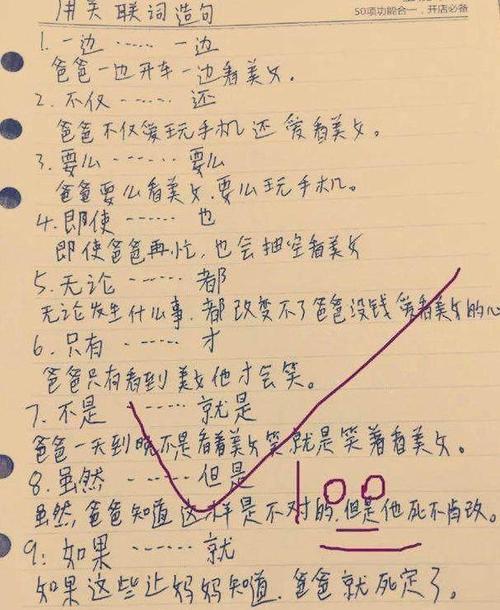 用关联词造句
50项功能合一，开店必备
1. 一边 ······ 一边
爸爸一边开车一边看美女。
2. 不仅 ······ 还
爸爸不仅爱玩手机还爱看美女。
3. 要么 ······ 要么
爸爸要么看美女.要么玩手机。
4. 即使 ······ 也
即使爸爸再忙，也会抽空看美女
5. 无论 ······ 都
无论发生什么事.都改变不了爸爸没钱爱看美女的心
6. 只有 ······ 才
爸爸只有看到美女他才会笑。
7. 不是 ······ 就是
爸爸一天到晚不是看着美女笑就是笑着看美女。
8. 虽然 ······ 但是
虽然，爸爸知道这样是不对的.但是他死不肯改。
100
9: 如果 ······ 就
如果这些让妈妈知道.爸爸就死定了。